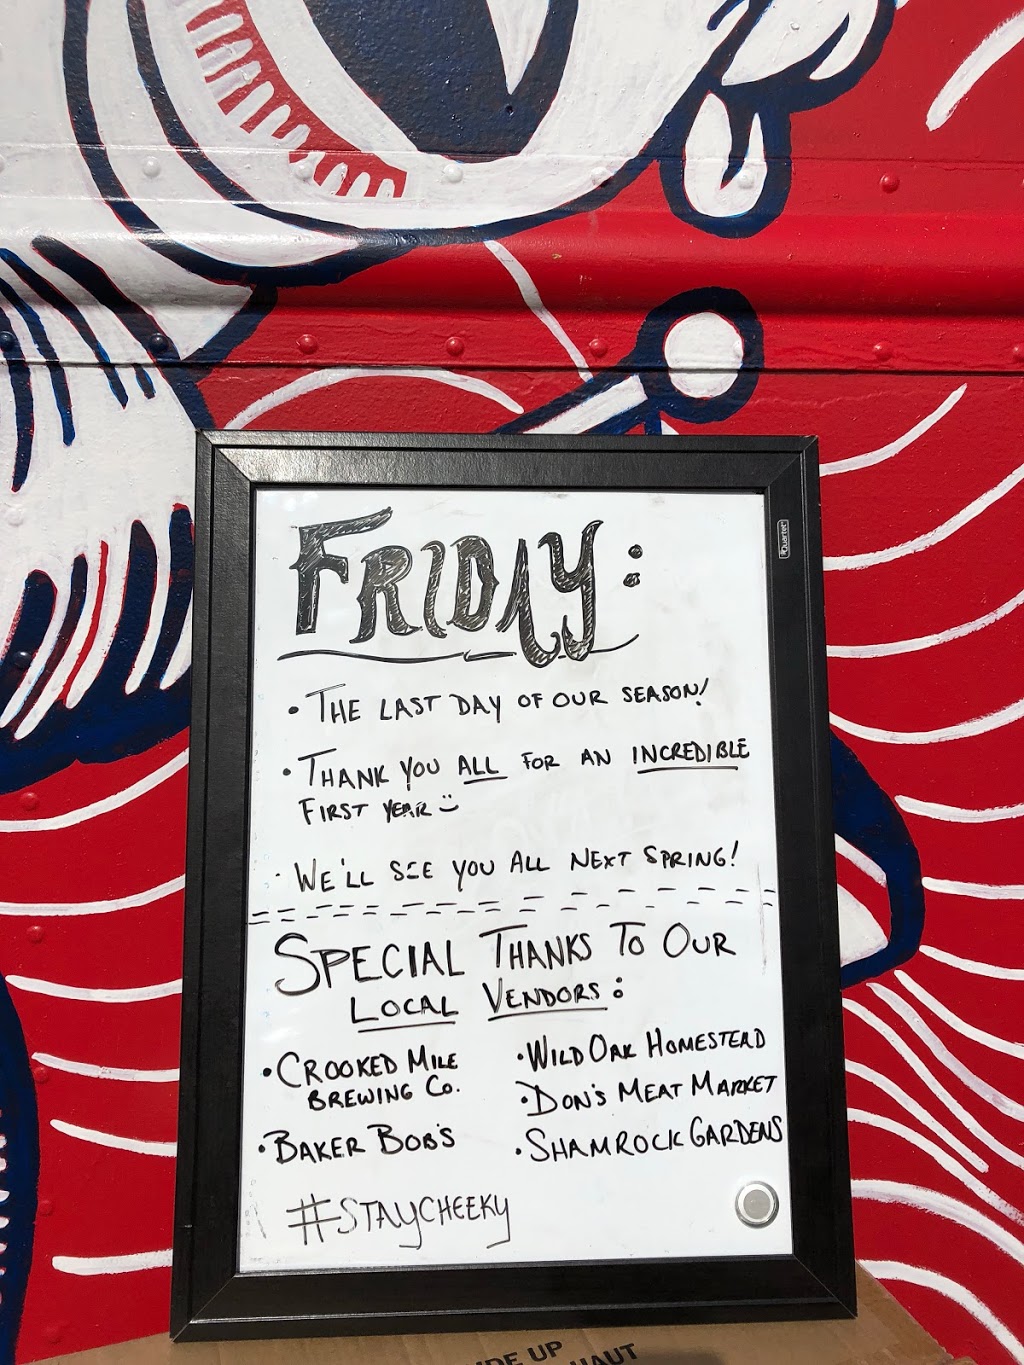 Quartet
FRIDAY:
• THE LAST DAY OF OUR SEASON!
• THANK YOU ALL FOR AN INCREDIBLE
FIRST YEAR
• WE'LL SEE YOU ALL NEXT SPRING!
SPECIAL THANKS TO OUR
LOCAL VENDORS:
• CROOKED MILE
BREWING CO.
• BAKER BOB'S
• WILD OAK HOMESTEAD
• DON'S MEAT MARKET
• SHAMROCK GARDENS
#STAYCHEEKY
DE UP
HAUT